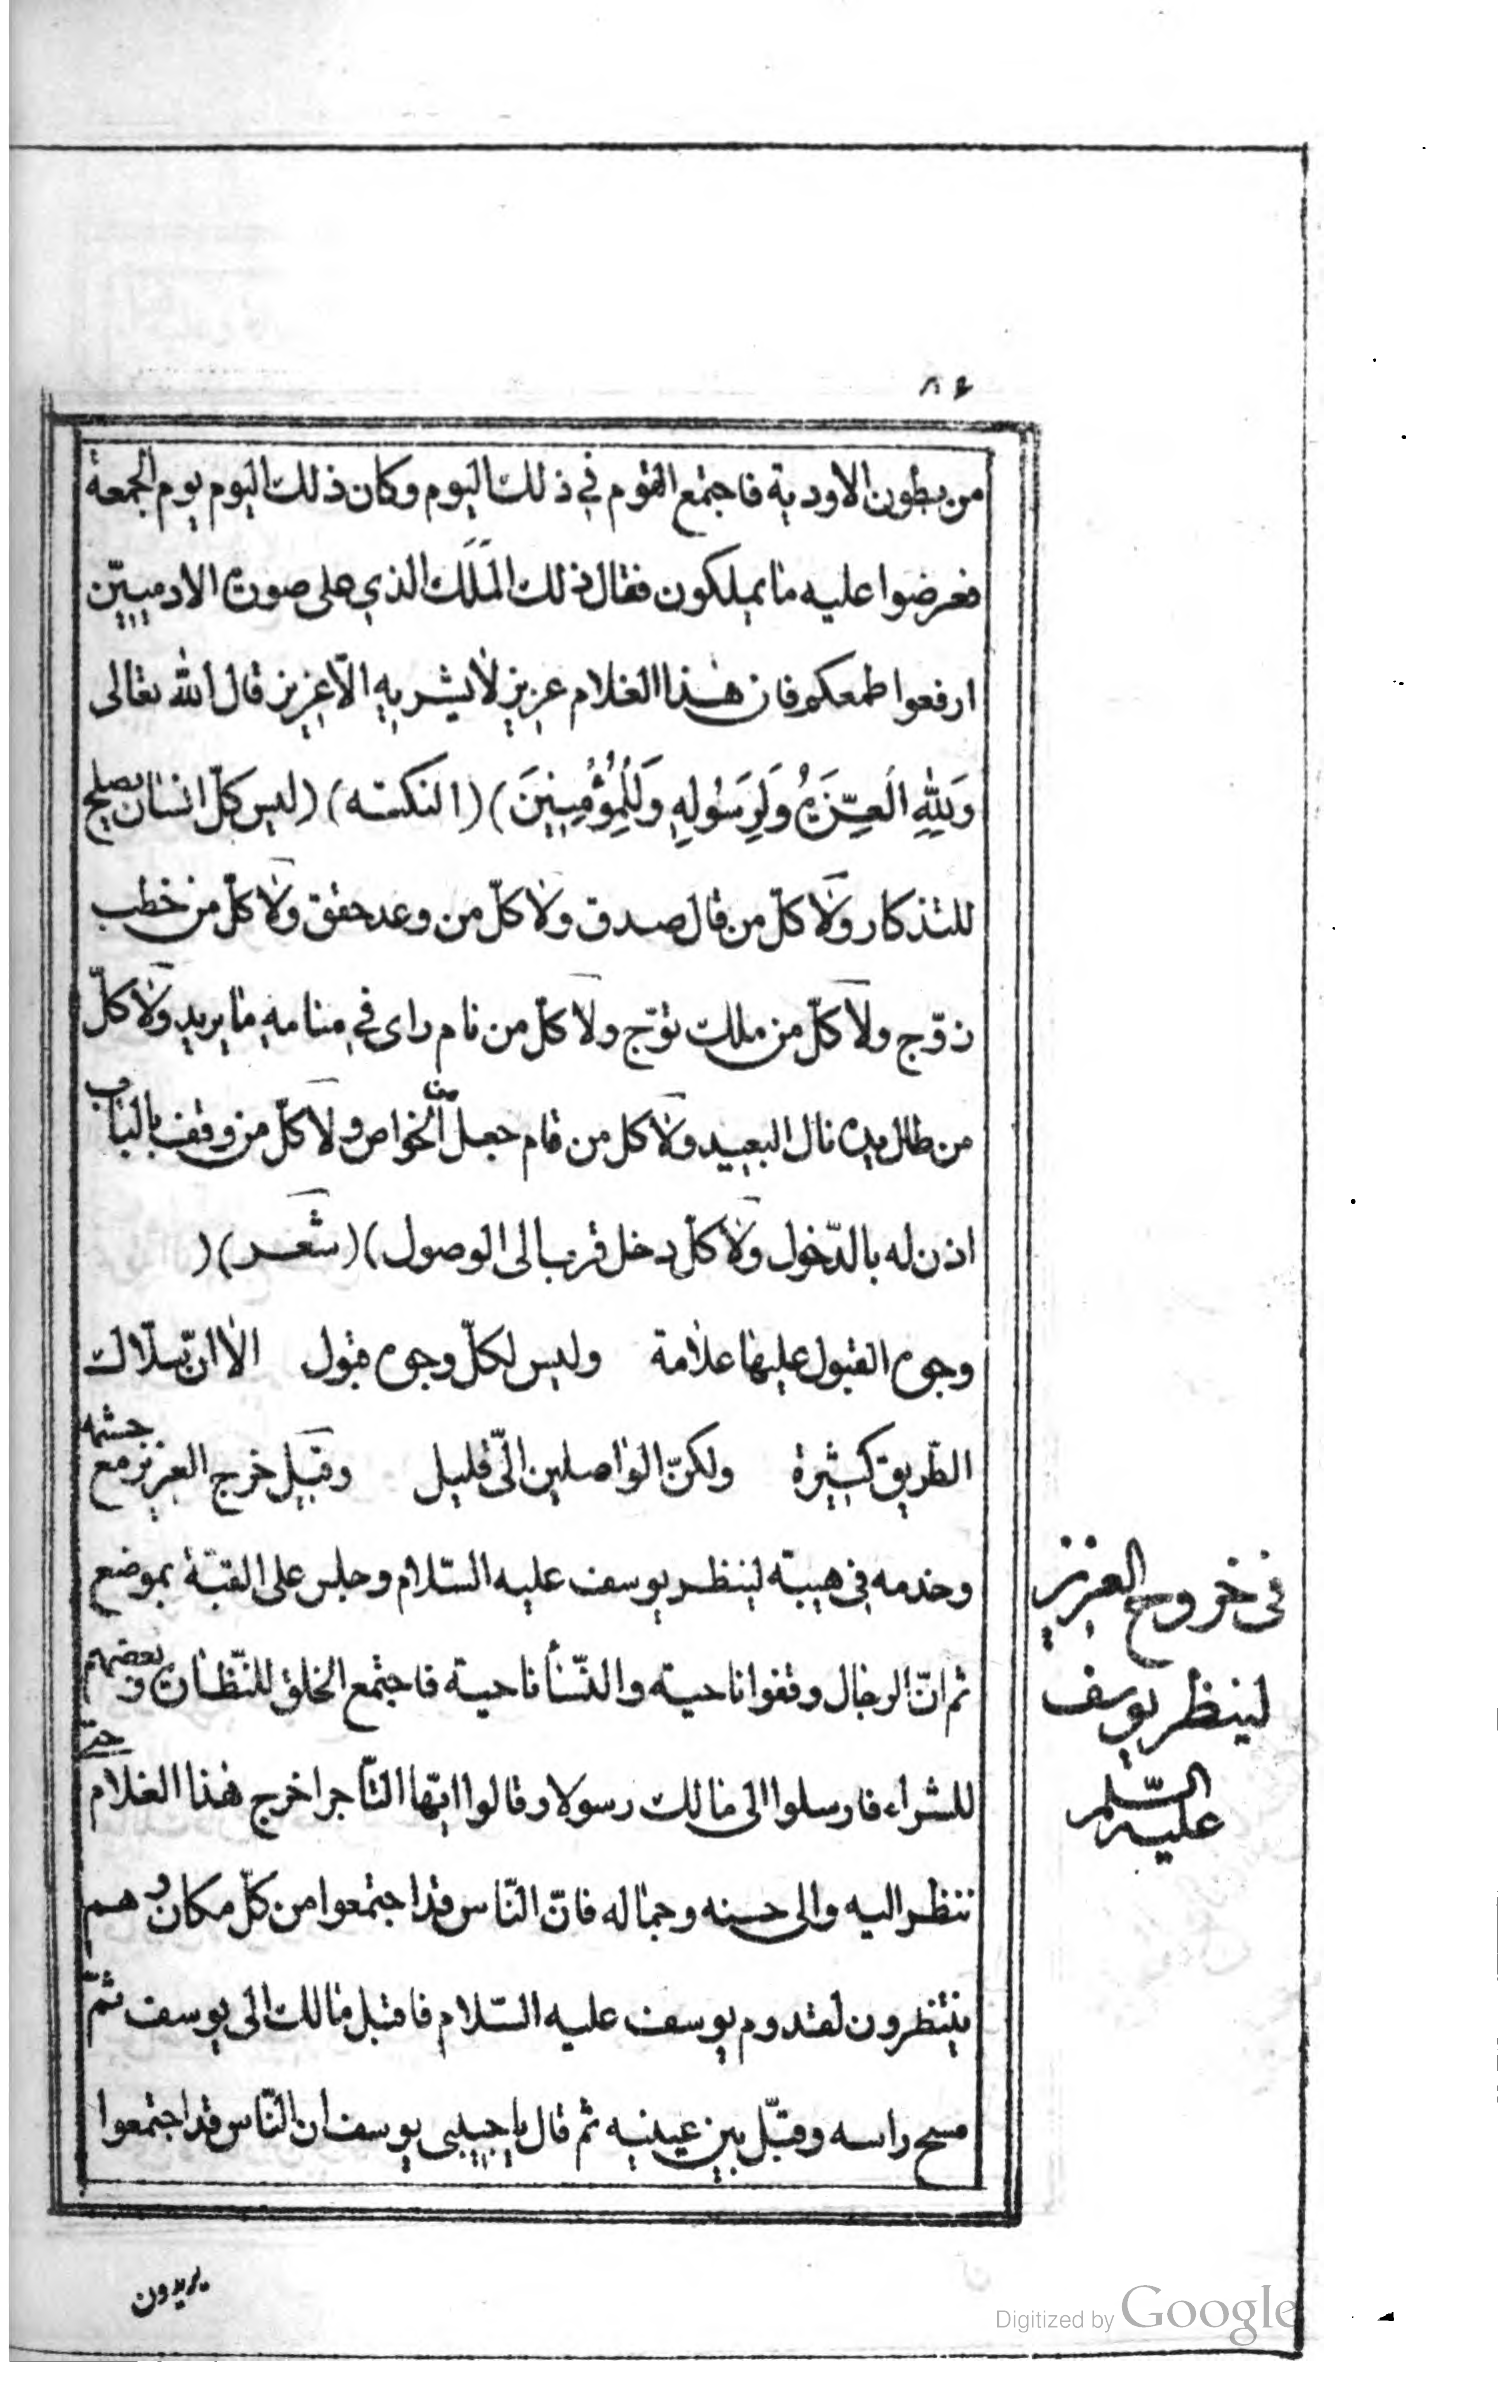 ٨٤
من بطون الاودية فاجتمع القوم في ذلك اليوم وكان ذلك اليوم يوم الجمعة
فعرضوا عليه ما يملكون فقال ذلك المَلَك الذي على صورة الادميين
ارفعوا طمعكم فان هذا الغلام عزيز لا يشتريه الّا عزيز قال الله تعالى
وَلِلّهِ الْعِزَّةُ وَلِرَسُولِهِ وَلِلْمُؤْمِنِينَ) (النكته) (ليس كلّ انسان يصلح
للتذكار ولا كلّ من قال صدق ولا كلّ من وعد حقق ولا كلّ من خطب
زوّج ولا كلّ من ملك توّج ولا كلّ من نام راى في منامه ما يريد ولا كلّ
من طال يده نال البعيد ولا كل من قام جعل من الخواص ولا كلّ من وقف بالباب
اذن له بالدّخول ولا كلّ دخل قرب الى الوصول) (شعر) (
وجوه القبول عليها علامة وليس لكلّ وجوه قبول الا انّ سلاك
الطّريق كثيرة ولكنّ الواصلين الّى قليل وقيل خرج العزيز مع حشمه
وخدمه في هيبته لينظر يوسف عليه السّلام وجلس على القبّة بموضع
ثم انّ الرجال وقفوا ناحية والنّسأ ناحية فاجتمع الخلق للنّظارة وبعضهم
للشراء فارسلوا الى مالك رسولا وقالوا ايّها التّاجر اخرج هذا الغلام حتّى
ننظر اليه والى حسنه وجماله فانّ النّاس قد اجتمعوا من كلّ مكان وهم
ينتظرون لقدوم يوسف عليه السّلام فاقبل مالك الى يوسف ثمّ
مسح راسه وقبّل بين عينيه ثم قال يا حبيبى يوسف ان النّاس قد اجتمعوا
فى خروج العزيز
لينظر يوسف
عليه السّلم
يريدون
Digitized by Google